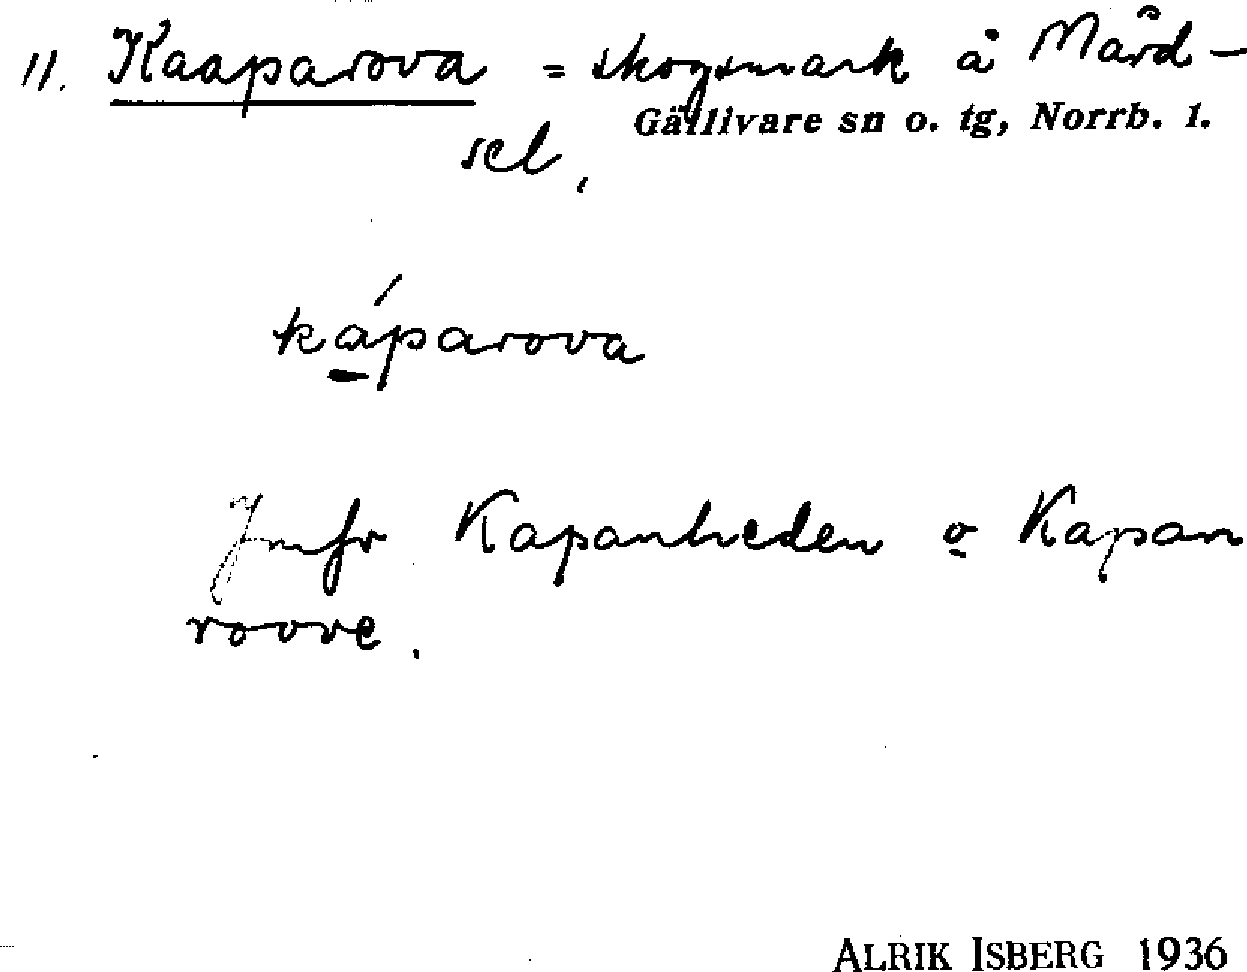 11. Kaaparova = skogsmark å Mård-
Gällivare sn o. tg, Norrb. l.
sel,
káparova
Jmfr Kapanheden o Kapan
roove.
ALRIK ISBERG 1936